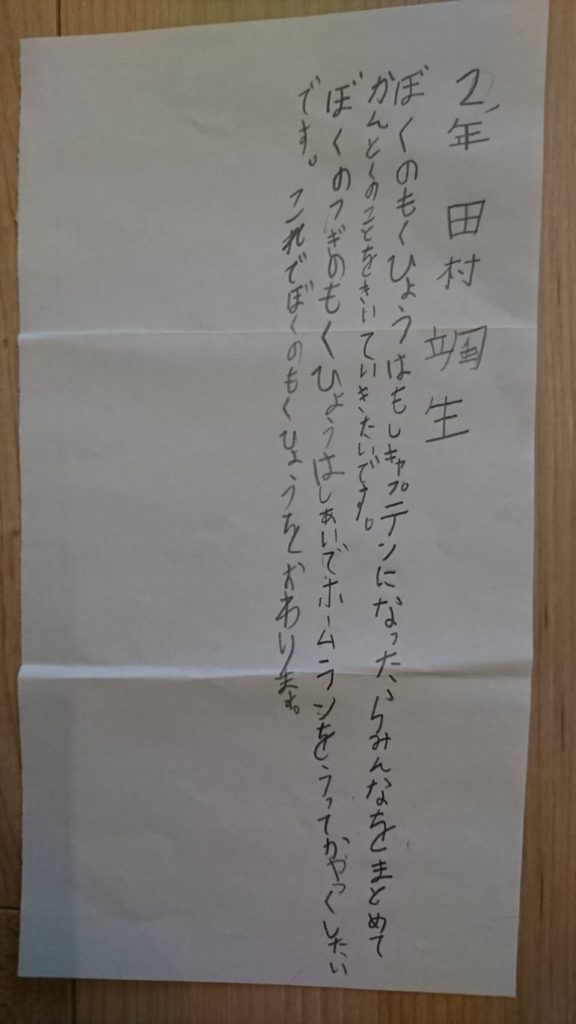 2年 田村 颯生
ぼくのもくひょうはもしキャプテンになったらみんなをまとめて
かんとくのことをきいていきたいです。
ぼくのつぎのもくひょうはしあいでホームランをうってかやつくしたい
です。 これでぼくのもくひょうをおわります。